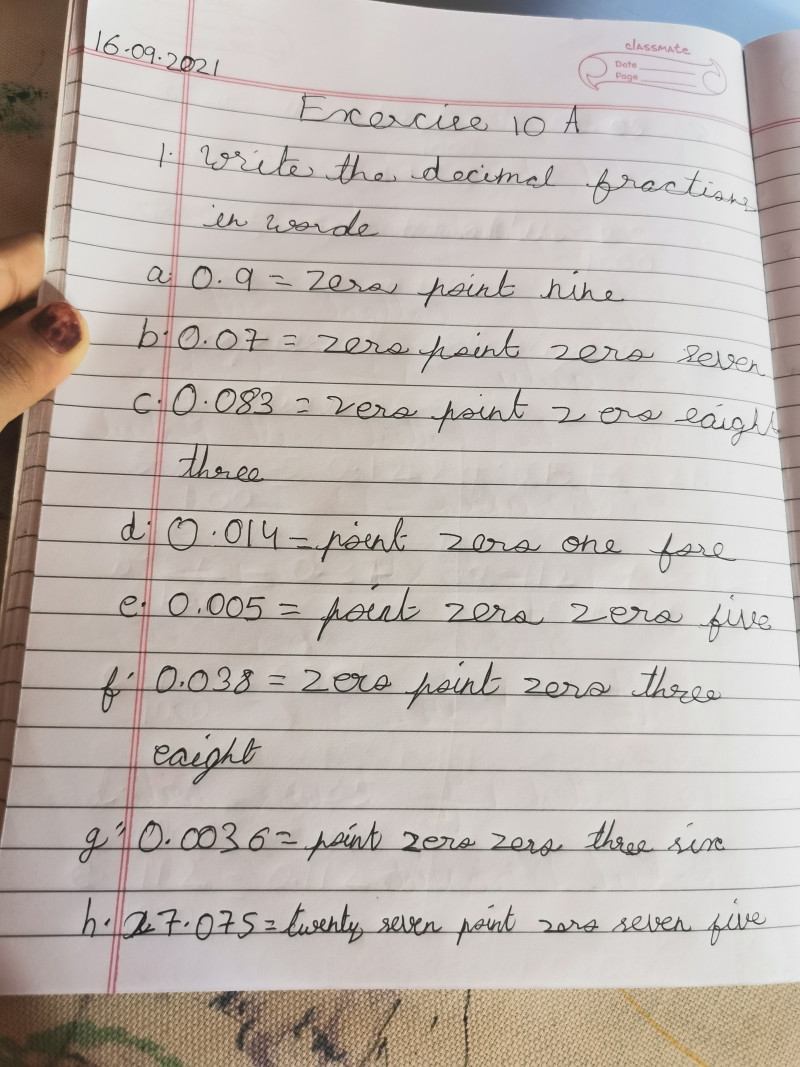 16.09.2021
classmate
Date
Page
Exercise 10 A
1. Write the decimal fractions
in words
a. 0.9 = zero point nine
b. 0.07 = zero point zero seven
c. 0.083 = zero point zero eaight
three
d. 0.014 = point zero one fore
e. 0.005 = point zero zero five
f. 0.038 = zero point zero three
eaight
g. 0.0036 = point zero zero three six
h. 27.075 = twenty seven point zero seven five